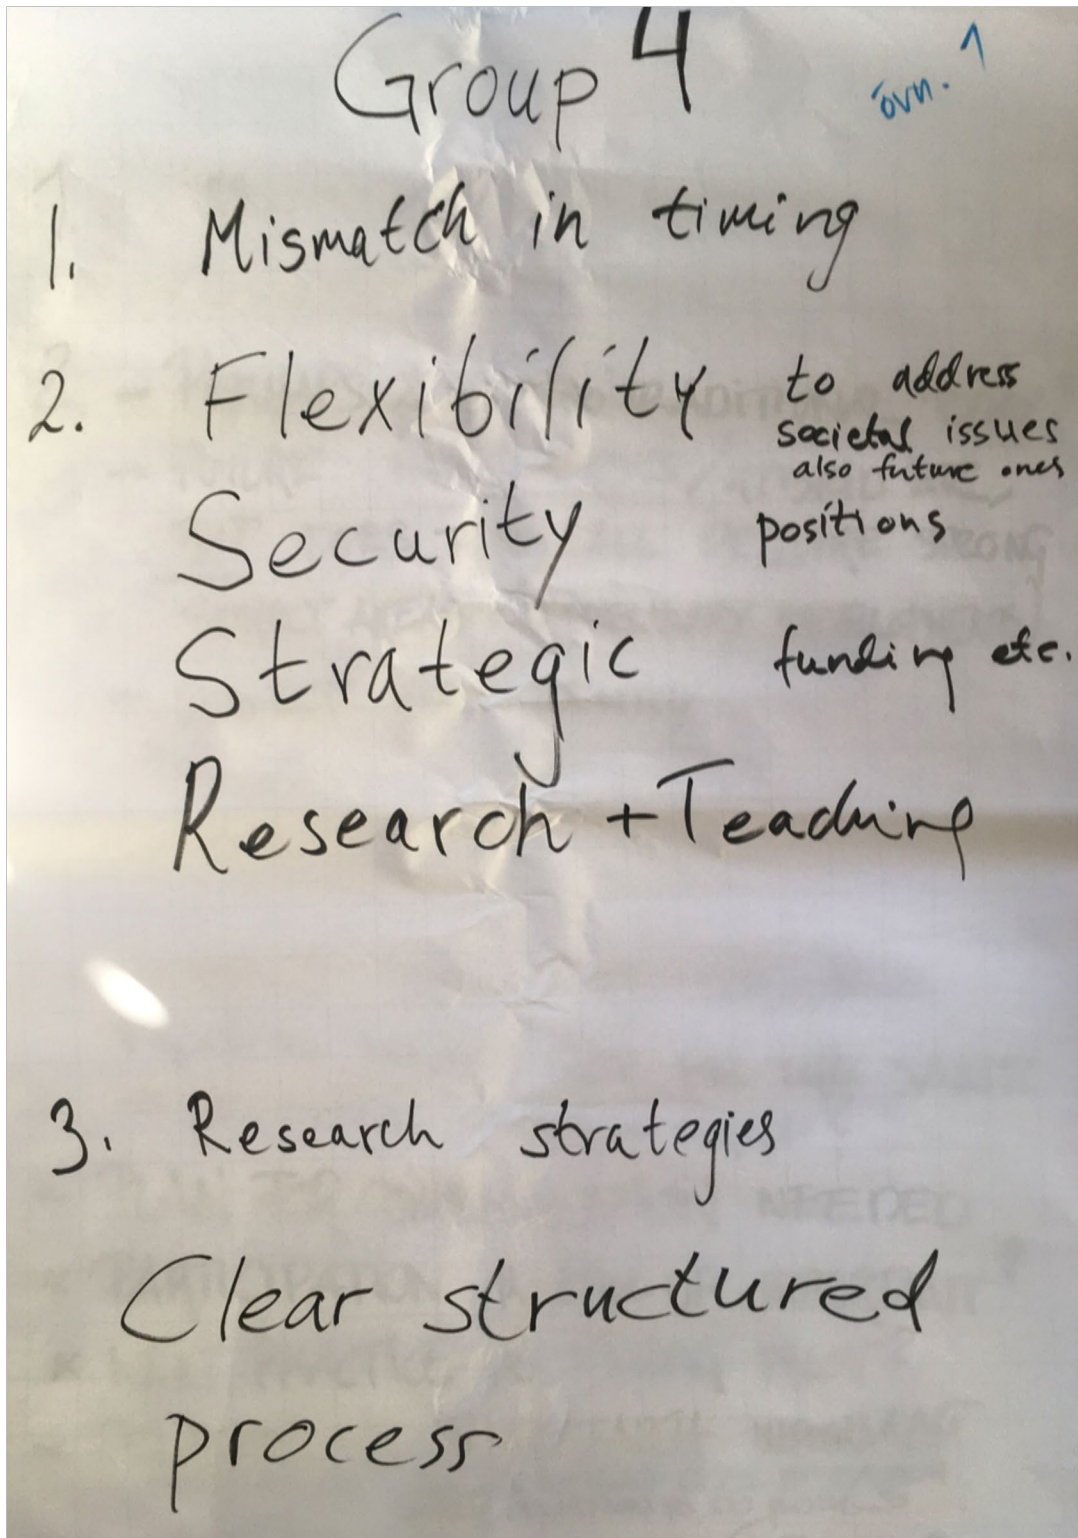 Group 4
övn. 1
1. Mismatch in timing
2. Flexibility to address
societal issues
also future ones
Security positions
Strategic funding etc.
Research + Teaching
3. Research strategies
Clear structured
process